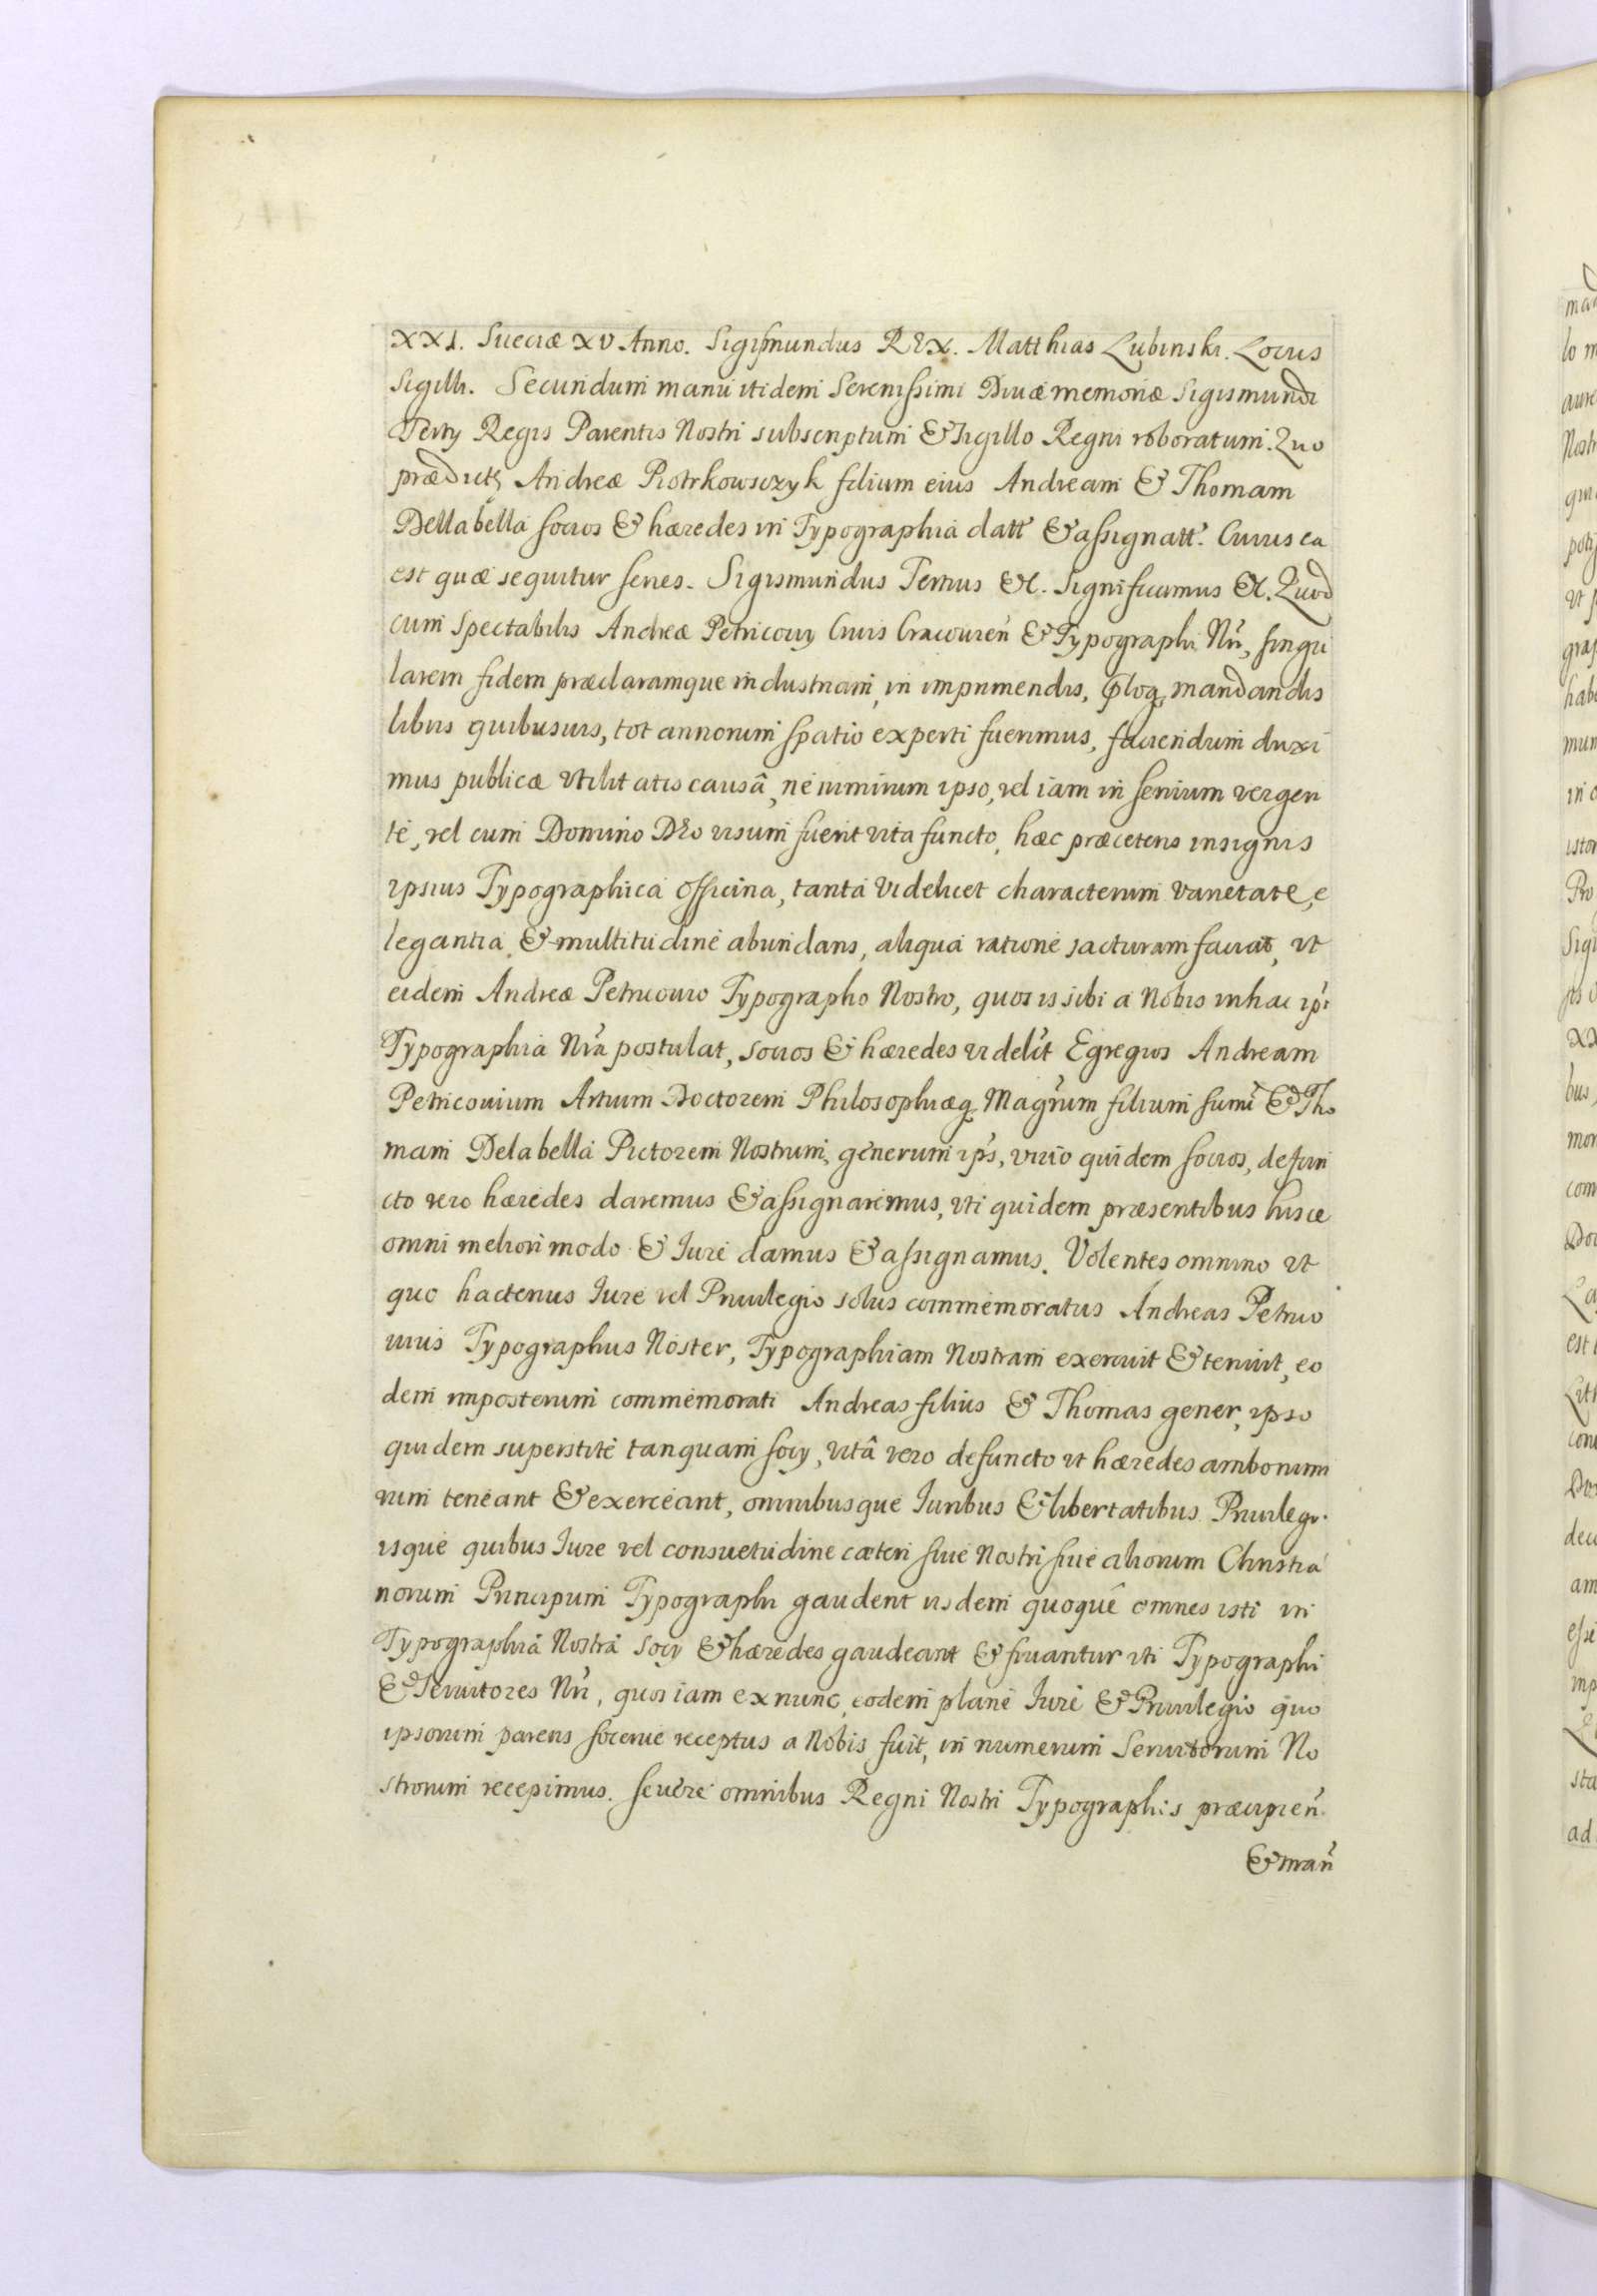 XXI. Sueciæ XV Anno. Sigismundus REX. Matthias Lubinski. Locus
Sigilli. Secundum manu itidem Serenissimi Divæ memoriæ Sigismundi
Tertÿ Regis Parentis Nostri subscriptum & Sigillo Regni roboratum. Quo
prædicti Andreæ Piotrkowczyk filium eius Andream & Thomam
Dellabella socios & hæredes in Typographia datt & assignatt. Cuius ea
est quæ sequitur series. Sigismundus Tertius &c. Significamus &c. Quod
cum Spectabilis Andreæ Petricouÿ Ciuis Cracouien & Typographi Nri, singu
larem fidem præclaramque industriam, in imprimendis, mandandis
libris quibusuis, tot annorum spatio experti fuerimus, faciendum duxi
mus publicæ vtilitatis causâ, ne nimirum ipso, vel iam in senium vergen
te, vel cum Domino DEo uisum fuerit vita functo, hæc præceteris insignis
ipsius Typographica officina, tanta videlicet characterum varietate, e
legantia, & multitudine abundans, aliqua ratione iacturam faciat, vt
eidem Andreæ Petricouio Typographo Nostro, quos is sibi a Nobis in hac ipi
Typographia Nra postulat, socios & hæredes videlit Egregios Andream
Petricouium Artium Doctorem Philosophiæq Magrum filium suum & Tho
mam Delabella Pictorem Nostrum, generum ips, viuo quidem socios, defun
cto vero hæredes daremus & assignaremus, vti quidem præsentibus hisce
omni meliori modo & Iure damus & assignamus. Volentes omnino vt
quo hactenus Iure vel Priuilegio solus commemoratus Andreas Petrico
uius Typographus Noster, Typographiam Nostram exercuit & tenuit, eo
dem imposterum commemorati Andreas filius & Thomas gener, ipso
quidem superstite tanquam socÿ, vitâ vero defuncto vt hæredes amborum
rum teneant & exerceant, omnibusque Iuribus & libertatibus Priuilegi
isque quibus Iure vel consuetudine cæteri siue Nostri siue aliorum Christia
norum Principum Typographi gaudent iisdem quoquê omnes isti in
Typographiâ Nostrâ socÿ & hæredes gaudeant & fruantur vti Typographi
& Seruitores Nri, quos iam ex nunc, eodem plane Iure & Priuilegio quo
ipsorum parens socerue receptus a Nobis fuit, in numerum Seruitorum No
strorum recepimus. Seuere omnibus Regni Nostri Typographis præcipien
& man